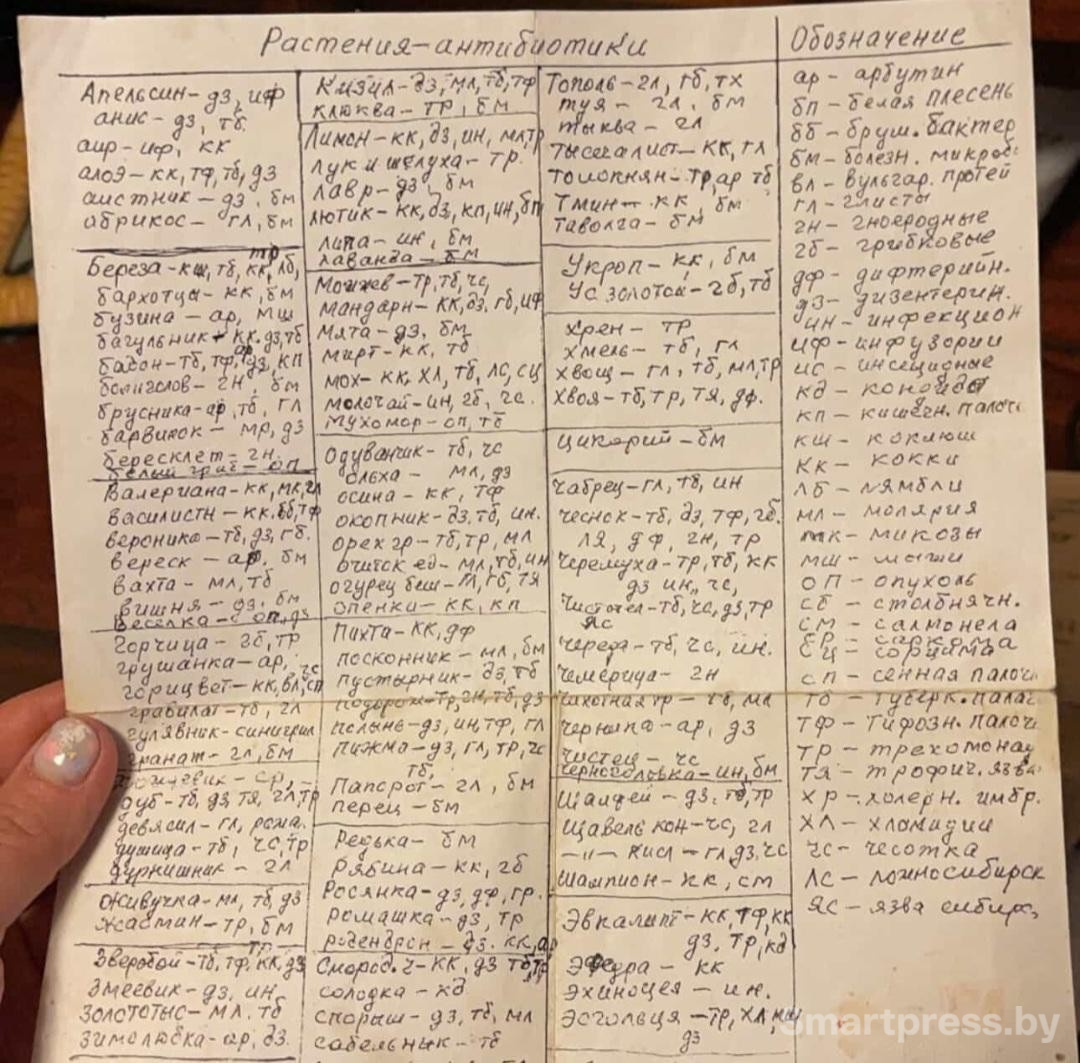 Растения-антибиотики
Апельсин-дз, иф
анис-дз, тб.
аир-иф, кк
алоэ-кк, тф, тб, дз
аистник-дз, бм
абрикос-гл, бм
Береза-кш, тб, кк, лб, тр
бархотцы-кк, бм
бузина-ар, мш
багульник-кк. дз, тб
бадон-тб, тф, ар дз, кп
болиголов-гн, бм
брусника-ар, тб, гл
барвинок-мр, дз
бересклет-гн.
белый гриб-оп
Валериана-кк, мк, гл
василистн-кк. бб, тф
вероника-тб, дз, гб.
вереск-ар, бм
вахта-мл, тб
вишня-дз. бм
Веселка-оп, дз
Горчица-зб, тр
грушанка-ар, чс
горицвет-кк, вл, сп
грабилат-тб, гл
гулявник-синигрил
гранат-гл, бм
-ср,
дуб-тб, дз, тя, гл, тр
девясил-гл, рама.
душица-тб, чс, тр
дурнишник-гл
Живучка-мл, тб, дз
жасмин-тр, бм
Зверобой-тб, тф, кк, дз тр
змеевик-дз, ин
золототыс-мл, тб
зимолюбка-ар, дз.
Кизил-дз, мл, тб, тф
клюква-тр, бм
Лимон-кк, дз, ин, мл, тр
лук и шелуха-тр.
лавр-дз, бм
лютик-кк, дз, кп, ин, бп
липа-ин, бм
лаванда-бм
Можжев-тр, тб, чс,
мандарн-кк, дз, гб, иф
мята-дз, бм
мирт-кк, тб
мох-кк, хл, тб, лс, сц
молочай-ин, гб, чс.
мухомор-оп, тб
Одуванчик-тб, чс
ольха-мл, дз
осина-кк, тф
окопник-дз, тб, ин.
орех гр-тб, тр, мл
очиток ед-мл, тб, ин
огурец беш-гл, гб, тя
опенки-кк, кп
Пихта-кк, дф
посконник-мл, бм
пустырник-дз, тб
подорож-тр, гн, тб, дз
полынь-дз, ин, тф, гл
пижма-дз, гл, тр, чс
тб,
Папорот-гл, бм
перец-бм
Редька-бм
Рябина-кк, гб
Росянка-дз, дф, гр.
ромашка-дз, тр
родендрон-дз. кк, ар
Смород. ч-кк, дз тб, тр
солодка-кд
спорыш-дз, тб, мл
сабельник-тб
Тополь-гл, гб, тх
туя-гл, бм
тыква-гл
тысечалист-кк, гл
Толокнян-тр, ар тб
Тмин-кк, бм
таволга-бм
Укроп-кк, бм
Ус золотой-гб, тб
хрен-тр
хмель-тб, гл
хвощ-гл, тб, мл, тр
хвоя-тб, тр, тя, дф.
цикорий-бм
чабрец-гл, тб, ин
чеснок-тб, дз, тф, гб.
ля, дф, гн, тр
черемуха-тр, тб, кк
дз ин, чс,
Чистотел-тб, чс, дз, тр
яс
череда-тб, чс, ин.
чемерица-гн
чахотная тр-тб, мл
черника-ар, дз
чистец-чс
черноголовка-ин, бм
Шалфей-дз. тб, тр
Щавель кон-чс, гл
-"- кисл-гл, дз, чс
шампион-кк, ст
Эвкалипт-кк, тф, кк
дз, тр, кд
эфедра-кк
эхиноцея-ин.
эсгольция-тр, хл, мш
дз
Обозначение
ар-арбутин
бп-белая плесень
бб-бруш. бактер
бм-болезн. микроб
вл-вульгар. протей
гл-глисты
гн-гноеродные
гб-грибковые
дф-дифтерийн.
дз-дизентерин.
ин-инфекцион
иф-инфузории
ис-инсецидные
кд-кондиды
кп-кишечн. палочк
кш-коклюш
кк-кокки
лб-лямбли
мл-молярия
мк-микозы
мш-мыши
оп-опухоль
сб-столбнячн.
см-салмонела
ср-саркома
сц-
сп-сенная палочк
тб-туберк. палоч
тф-тифозн. палочк
тр-трехомонад
тя-трофич. язва
хр-холерн. имбр.
хл-хламидии
чс-чесотка
лс-ложносибирск
яс-язва сибирс,
smartpress.by